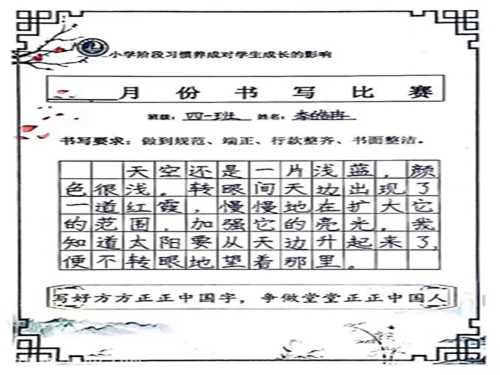 小学阶段习惯养成对学生成长的影响
月份书写比赛
班级：四一班 姓名：李皓冉
书写要求：做到规范、端正、行款整齐、书面整洁。
天空还是一片浅蓝，颜
色很浅。转眼间天边出现了
一道红霞，慢慢地在扩大它
的范围，加强它的亮光。我
知道太阳要从天边升起来了，
便不转眼地望着那里。
写好方方正正中国字，争做堂堂正正中国人